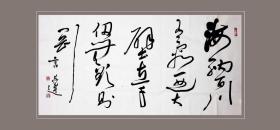 海纳百川
有容乃大
壁立千
仞无欲则
刚